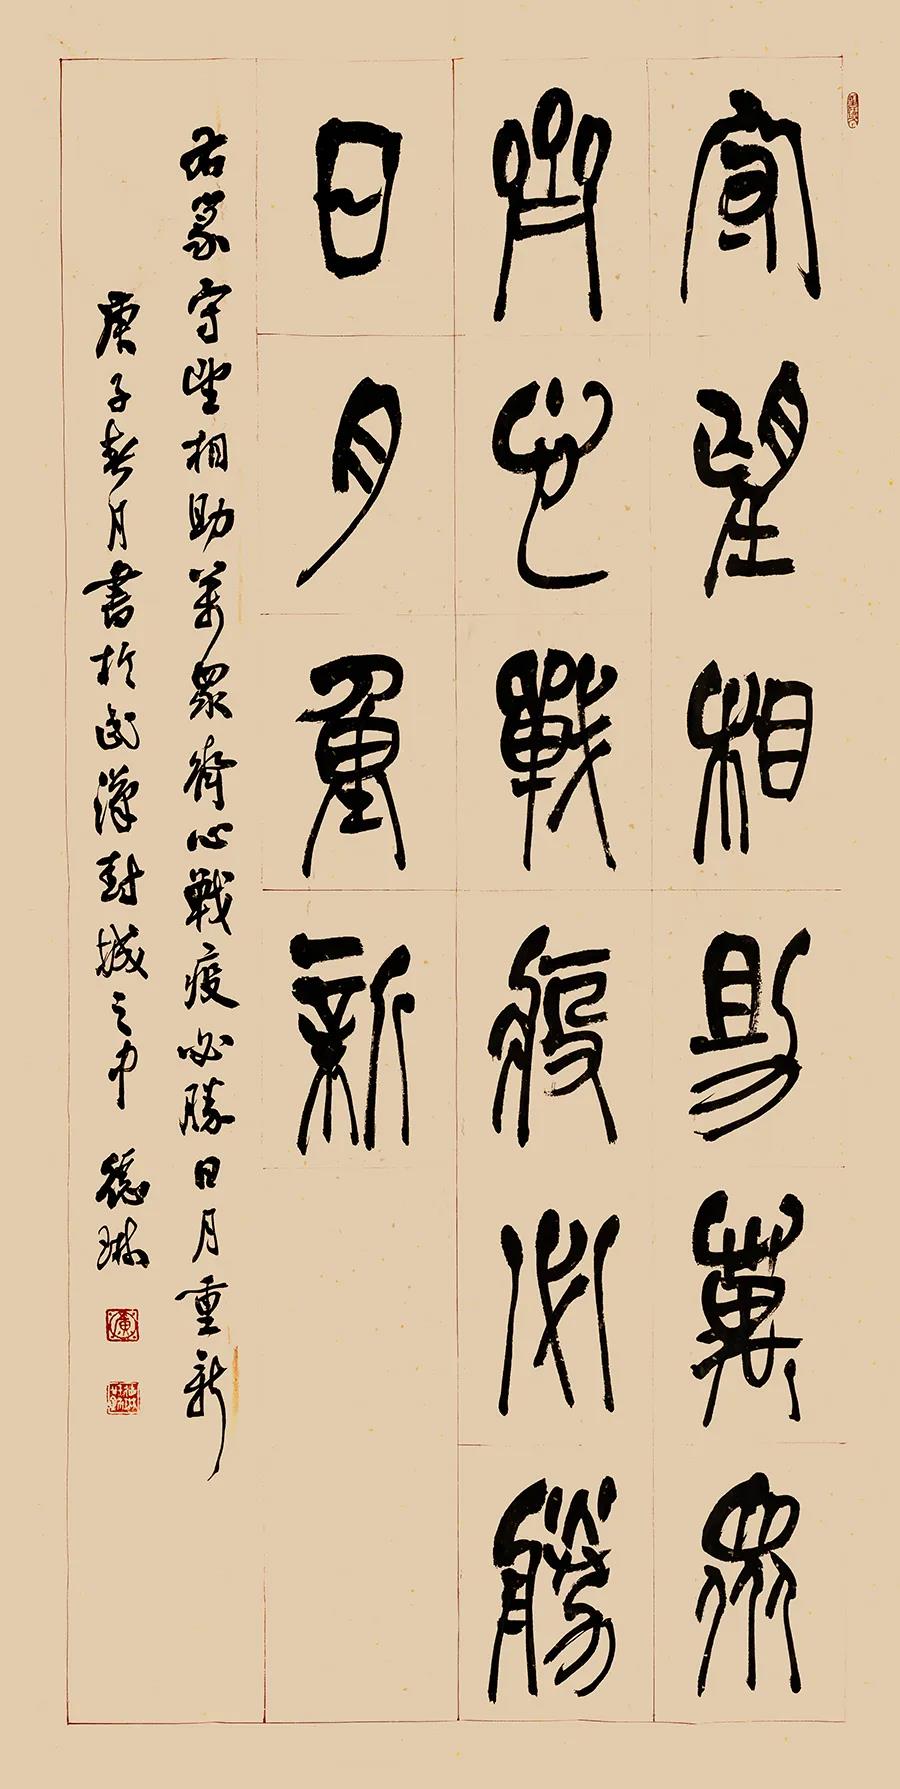 守望相助萬眾
齊心戰疫必勝
日月重新
右篆守望相助萬眾齊心戰疫必勝日月重新
庚子春月書於武漢封城之中 德琳